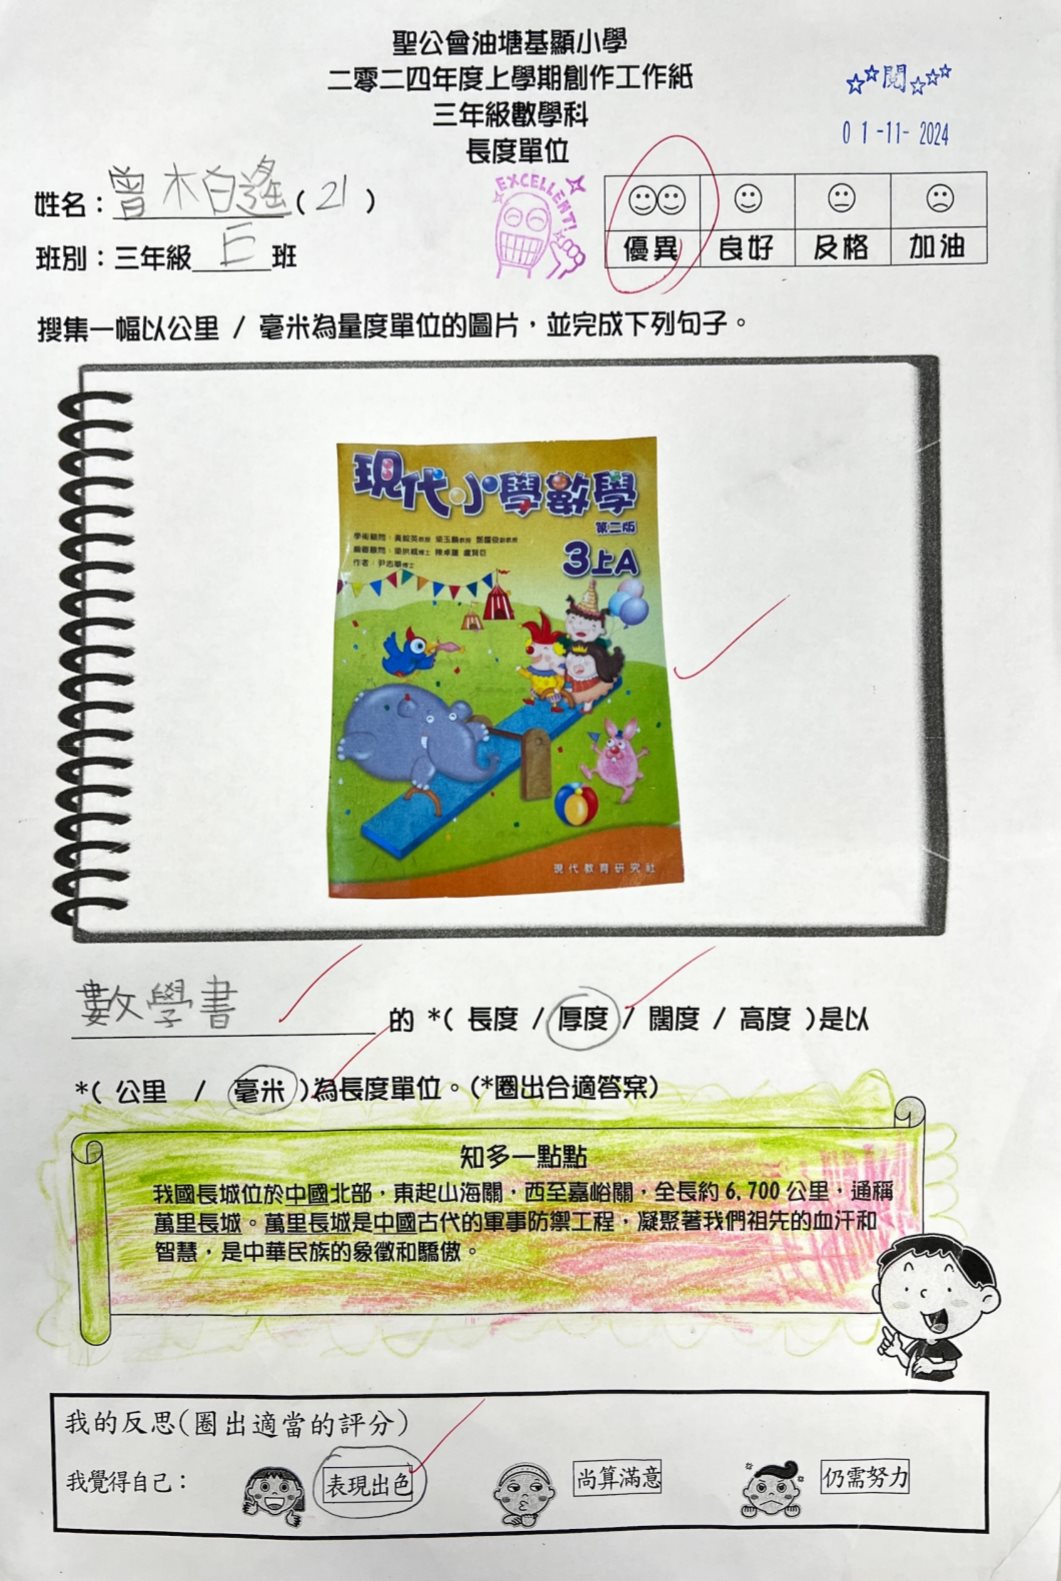 聖公會油塘基顯小學
二零二四年度上學期創作工作紙
三年級數學科
長度單位
☆☆閱☆☆☆
01-11-2024
姓名：曾木白遙(21)
班別：三年級巨班
EXCELLENT!
優異 良好 及格 加油
搜集一幅以公里 / 毫米為量度單位的圖片，並完成下列句子。
現代小學數學
第二版
3上A
作者：尹志華博士
現代教育研究社
數學書 的 *( 長度 / 厚度 / 闊度 / 高度 )是以
*( 公里 / 毫米 )為長度單位。(*圈出合適答案)
知多一點點
我國長城位於中國北部，東起山海關，西至嘉峪關，全長約 6,700 公里，通稱
萬里長城。萬里長城是中國古代的軍事防禦工程，凝聚著我們祖先的血汗和
智慧，是中華民族的象徵和驕傲。
我的反思(圈出適當的評分)
我覺得自己： 表現出色 尚算滿意 仍需努力